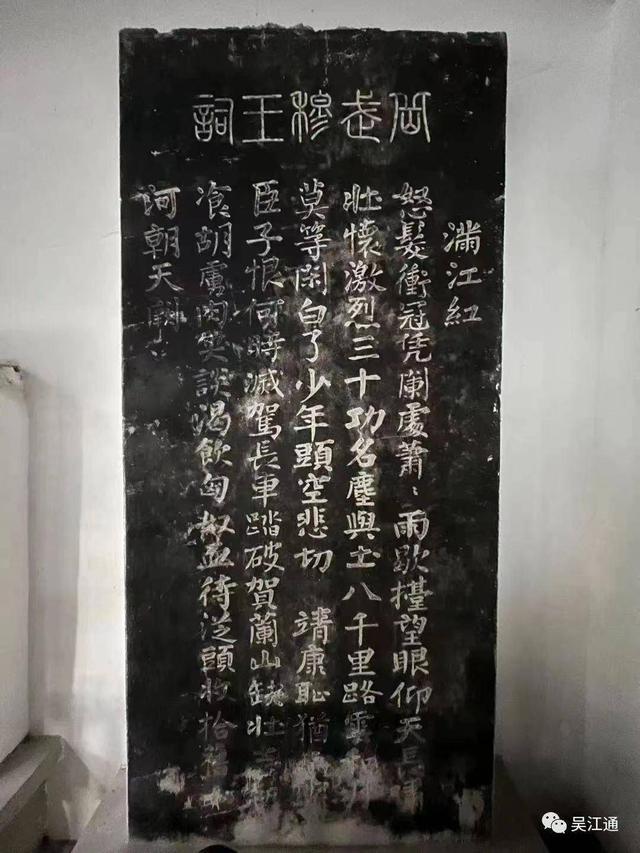 岳武穆王詞
滿江紅
怒髮衝冠凭闌處蕭〻雨歇擡望眼仰天長嘯
壯懷激烈三十功名塵與土八千里路雲和月
莫等閑白了少年頭空悲切 靖康恥猶
臣子恨何時滅駕長車踏破賀蘭山缺壯志飢
飡胡虜肉笑談渴飲匈奴血待從頭收拾舊山
河朝天闕
吴江通